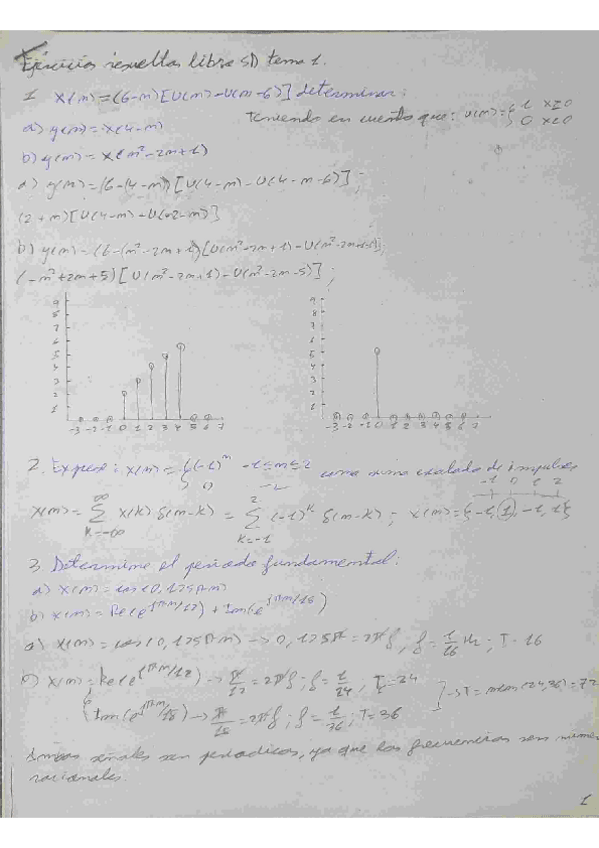 Ejercicios resueltos libro SD tema 1.
1 x(m)=(6-m)[U(m)-U(m-6)] determinar:
Teniendo en cuenta que: U(m)={ 1 x≥0
0 x<0
a) y(m)=x(4-m)
b) y(m)=x(m²-2m+1)
a) y(m)=(6-(4-m))[U(4-m)-U(4-m-6)];
(2+m)[U(4-m)-U(-2-m)]
b) y(m)=(6-(m²-2m+1)[U(m²-2m+1)-U(m²-2m+1-6)];
(-m²+2m+5)[U(m²-2m+1)-U(m²-2m-5)];
9 9
8 8
7 7
6 6
5 5
4 4
3 3
2 2
1 1
-3 -2 -1 0 1 2 3 4 5 6 7 -3 -2 -1 0 1 2 3 4 5 6 7
2. Exprese: x(m)={(-1)^m -1≤m≤2 como suma escalada de impulsos
0
-1 0 1 2
x(m)=∑ x(k) δ(m-k) = ∑ (-1)^k δ(m-k); x(m)={-1,1,-1,1}
k=-∞ ∞ k=-1 2
3. Determine el periodo fundamental:
a) x(m)=cos(0,125πm)
b) x(m)=Re(e^{jπm/12})+Im(e^{jπm/18})
a) x(m)=cos(0,125πm) → 0,125π=2πf, f=1/16 Hz; T=16
b) x(m)={Re(e^{jπm/12}) → π/12=2πf; f=1/24; T=24
Im(e^{jπm/18}) → π/18=2πf; f=1/36; T=36 } → T=mcm(24,36)=72
Ambas señales son periodicas, ya que las frecuencias son
racionales
1